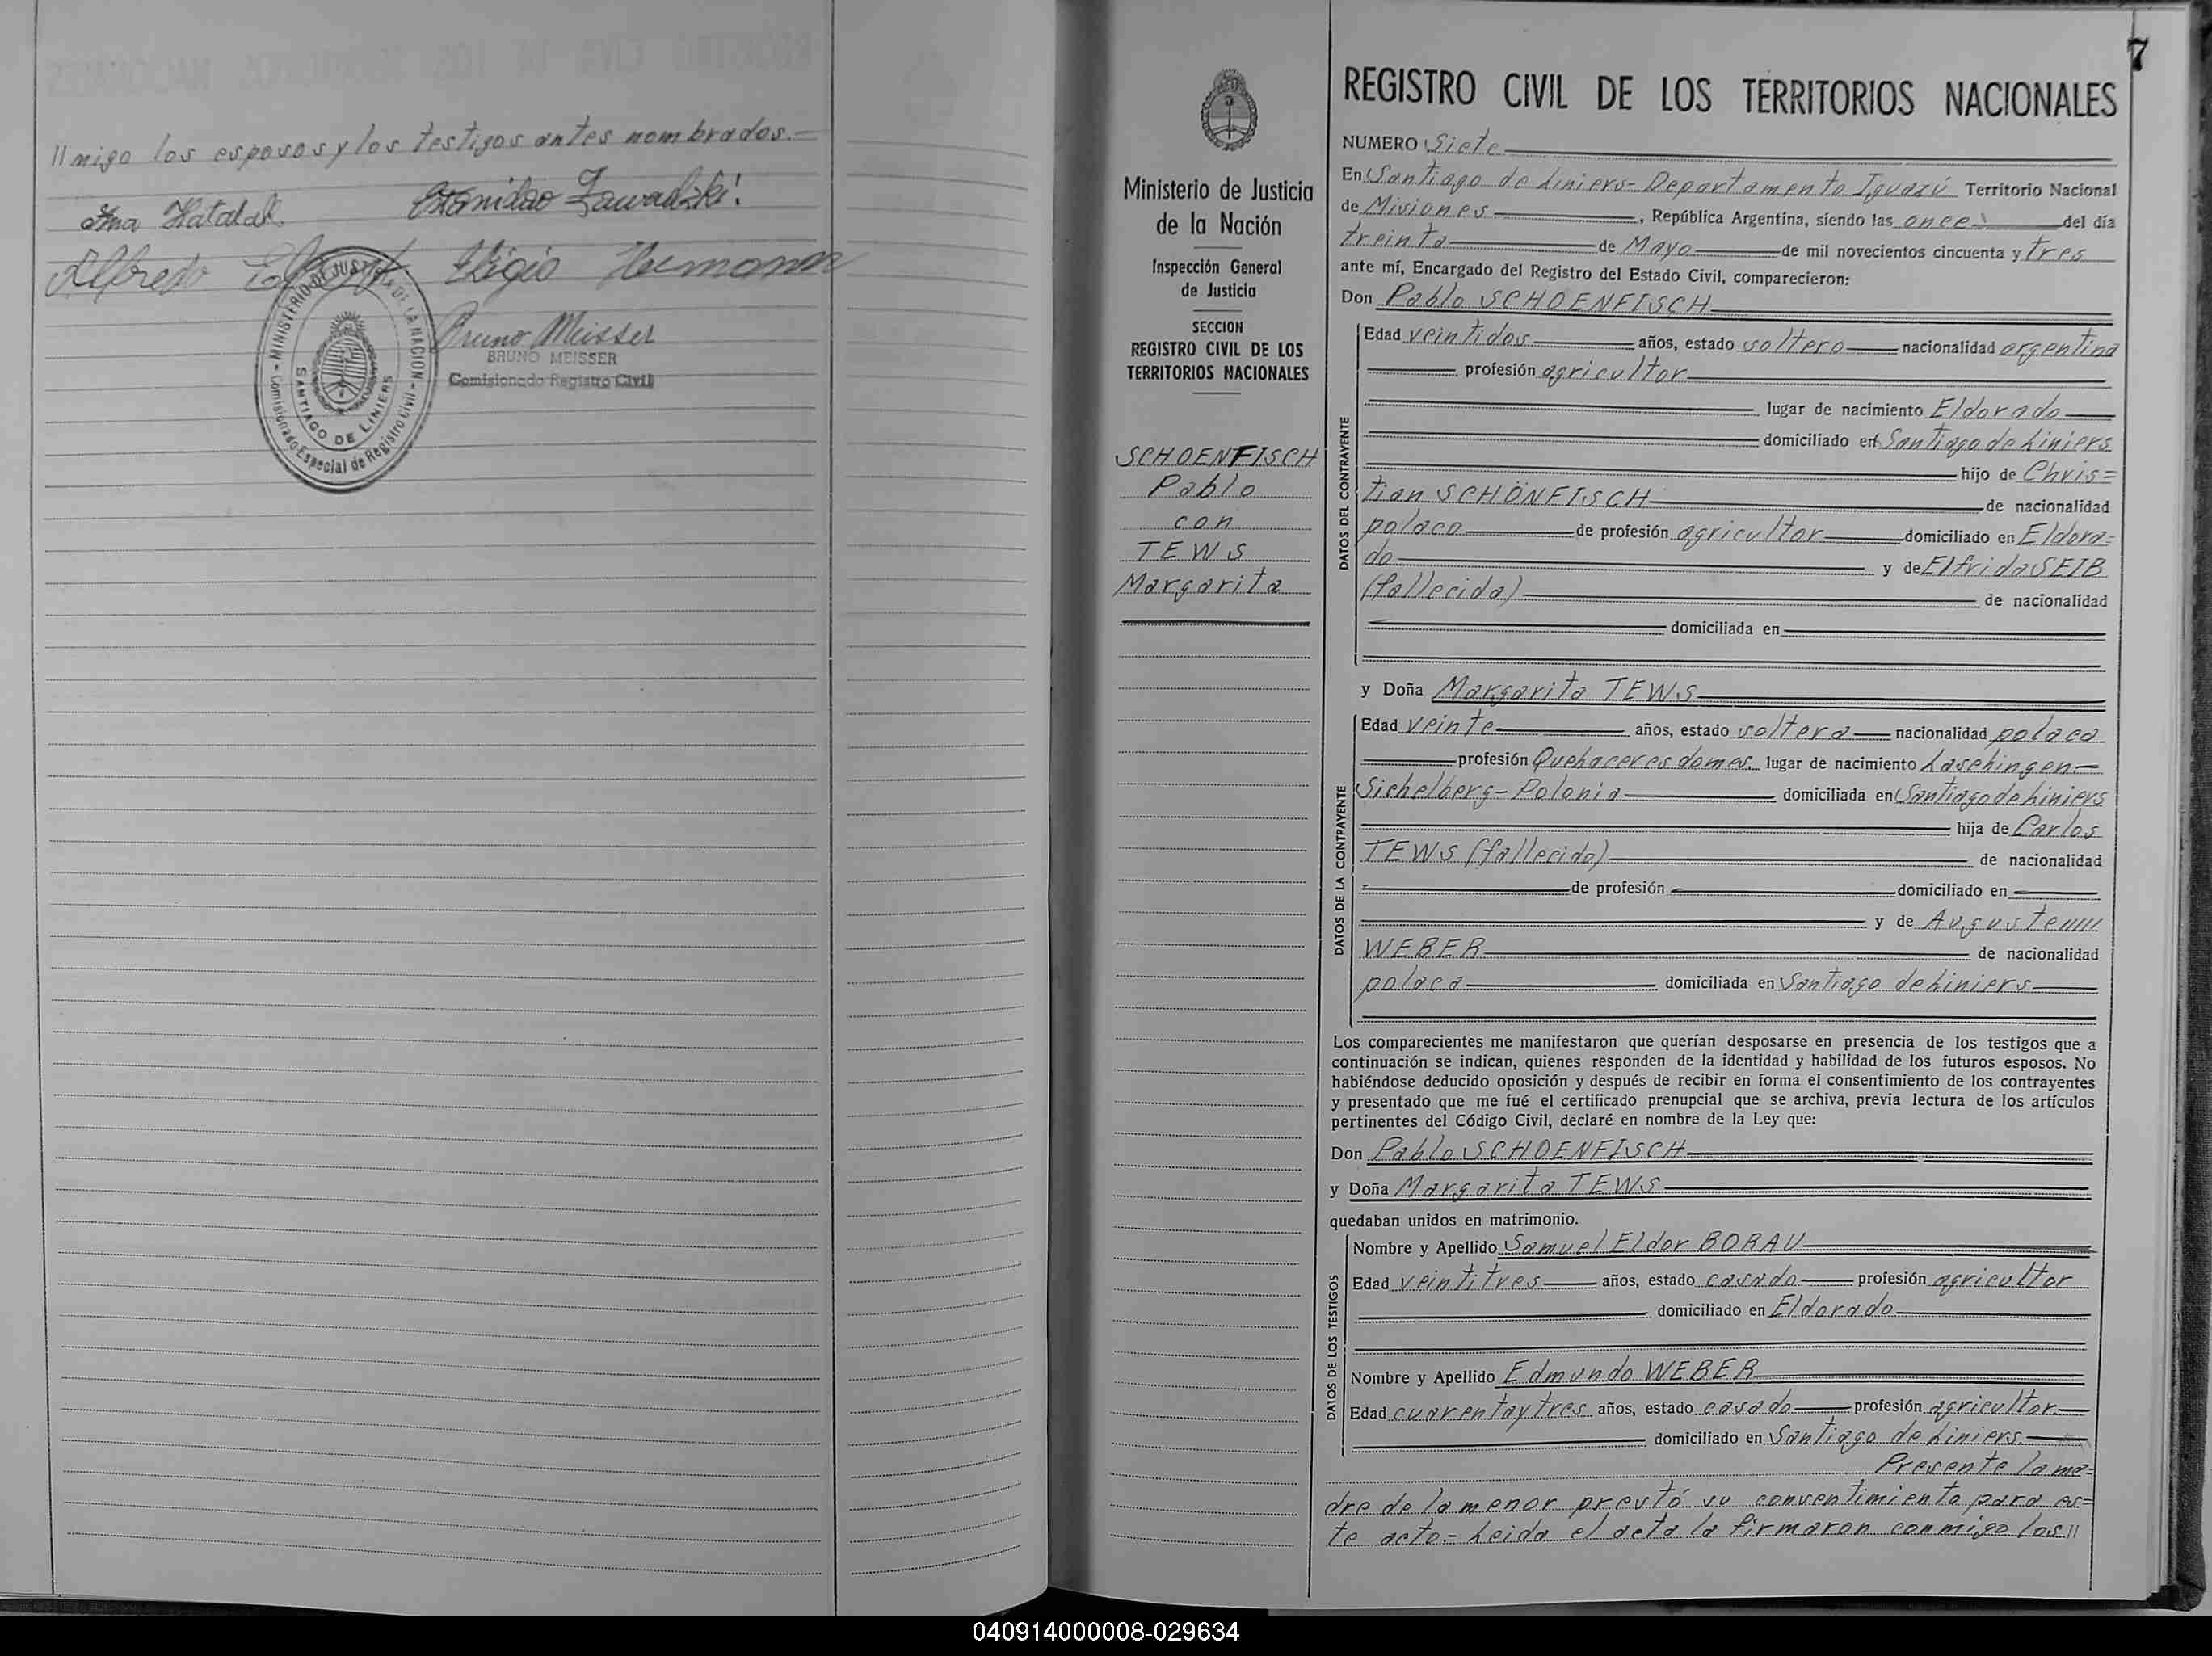 //migo los esposos y los testigos antes nombrados.-
Ana Hatadal. Estanislao Zawadzki!
Alfredo Eligio Hermann
Bruno Meisser
BRUNO MEISSER
Comisionado Registro Civil
MINISTERIO DE JUSTICIA DE LA NACION
Comisionado Especial de Registro Civil
SANTIAGO DE LINIERS
7
Ministerio de Justicia
de la Nación
Inspección General
de Justicia
SECCION
REGISTRO CIVIL DE LOS
TERRITORIOS NACIONALES
SCHOENFISCH
Pablo
con
TEWS
Margarita
REGISTRO CIVIL DE LOS TERRITORIOS NACIONALES
NUMERO Siete
En Santiago de Liniers- Departamento Iguazú Territorio Nacional
de Misiones, República Argentina, siendo las once del día
treinta de Mayo de mil novecientos cincuenta y tres
ante mí, Encargado del Registro del Estado Civil, comparecieron:
Don Pablo SCHOENFISCH
DATOS DEL CONTRAYENTE
Edad veintidos años, estado soltero nacionalidad argentina
profesión agricultor
lugar de nacimiento Eldorado
domiciliado en Santiago de Liniers
hijo de Chris=
tian SCHÖNFISCH de nacionalidad
polaco de profesión agricultor domiciliado en Eldora=
do y de Elfrida SEIB
(fallecida) de nacionalidad
domiciliada en
y Doña Margarita TEWS
DATOS DE LA CONTRAYENTE
Edad veinte años, estado soltera nacionalidad polaca
profesión Quehaceres domes. lugar de nacimiento Laschingen-
Sichelberg-Polonia domiciliada en Santiago de Liniers
hija de Carlos
TEWS (fallecido) de nacionalidad
de profesión domiciliado en
y de
WEBER de nacionalidad
polaca domiciliada en Santiago de Liniers
Los comparecientes me manifestaron que querían desposarse en presencia de los testigos que a
continuación se indican, quienes responden de la identidad y habilidad de los futuros esposos. No
habiéndose deducido oposición y después de recibir en forma el consentimiento de los contrayentes
y presentado que me fué el certificado prenupcial que se archiva, previa lectura de los artículos
pertinentes del Código Civil, declaré en nombre de la Ley que:
Don Pablo SCHOENFISCH
y Doña Margarita TEWS
quedaban unidos en matrimonio.
DATOS DE LOS TESTIGOS
Nombre y Apellido Samuel Eldor BORAU
Edad veintitres años, estado casado profesión agricultor
domiciliado en Eldorado
Nombre y Apellido Edmundo WEBER
Edad cuarentaytres años, estado casado profesión agricultor
domiciliado en Santiago de Liniers.
Presente la ma=
dre de la menor prestó su consentimiento para es=
te acto.- Leida el acta la firmaron conmigo los//
040914000008-029634